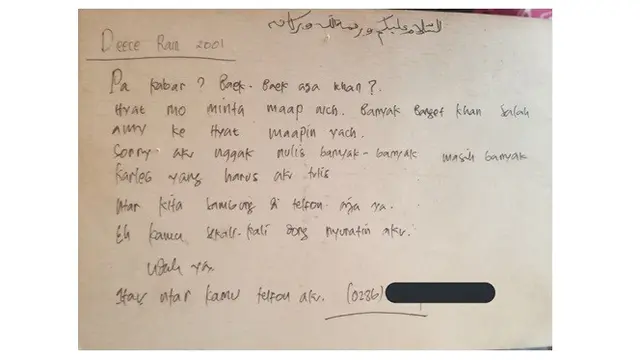 السلام عليكم ورحمة الله وبركاته
Deece Ran 2001
Pa kabar? Baek-Baek aja khan?
Hyat mo minta maap nich. Banyak banget khan salah
amy ke Hyat maapin yach.
Sorry aku nggak nulis banyak-banyak masih banyak
Kartes yang harus aku tulis
Ntar kita sambung di telfon aja ya.
Eh kamu sekali-kali dong nyuratin aku.
Udah ya.
ntar kamu telfon aku. (0286)